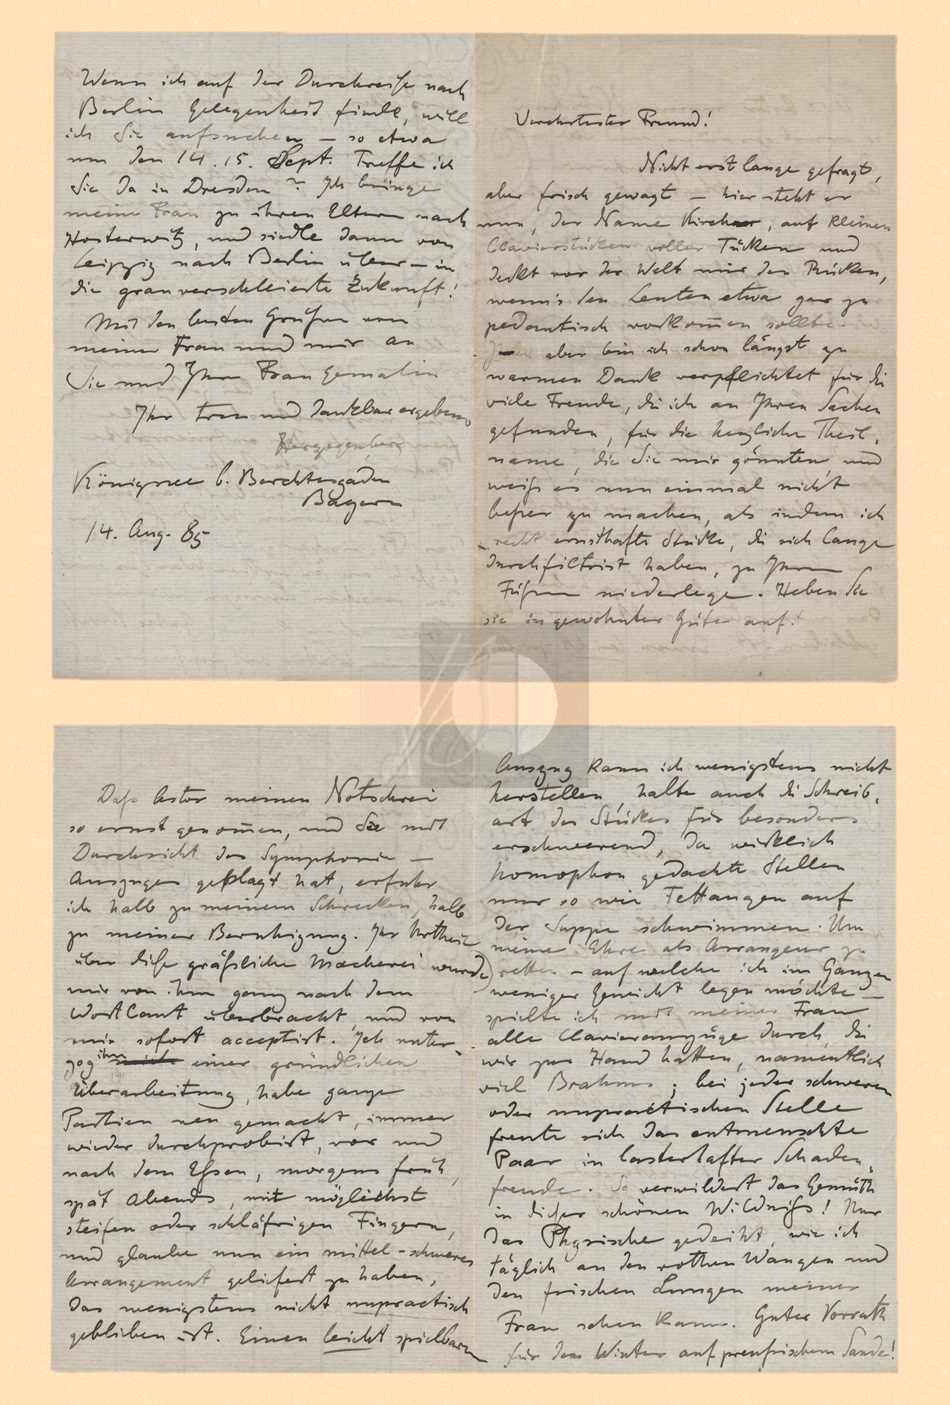 Verehrtester Freund!
Nicht erst lange gefragt,
aber frisch gewagt – hier steht er
nun, der Name Kirchner, auf kleinen
Clavierstücken voller Tücken und
deckt vor der Welt mir den Rücken,
wenn's den Leuten etwa gar zu
pedantisch vorkom̄en sollte.
aber bin ich schon längst zu
warmen Dank verpflichtet für die
viele Freude, die ich an Ihren Sachen
gefunden, für die herzliche Theil-
name, die Sie mir gönnten, und
weiß es nun einmal nicht
beßer zu machen, als indem ich
recht ernsthafte Stücke, die sich lange
durchfiltrirt haben, zu Ihren
Füßen niederlege. Heben Sie
sie in gewohnter Güte auf!
Daß Astor meinen Notschrei
so ernst genom̄en, und Sie mit
Durchsicht des Symphonie –
Auszuges geplagt hat, erfuhr
ich halb zu meinem Schrecken, halb
zu meiner Beruhigung. Ihr Urtheil
über diese gräßliche Macherei wurde
mir von ihm ganz nach dem
Wortlaut überbracht, und von
mir sofort acceptirt. Ich unter-
zog ihn einer gründlichen
Überarbeitung, habe ganze
Partien neu gemacht, immer
wieder durchprobirt, vor und
nach dem Eßen, morgens früh,
spät Abends, mit möglichst
steifen oder schläfrigen Fingern,
und glaube nun ein mittel-schweres
Arrangement geliefert zu haben,
das wenigstens nicht unpractisch
geblieben ist. Einen leicht spielbaren
Auszug kann ich wenigstens nicht
herstellen, halte auch die Schreib-
art des Stückes für besonders
erschwerend, da wirklich
homophon gedachte Stellen
nur so wie Fettaugen auf
der Suppe schwimmen. Um
meine Ehre als Arrangeur zu
retten – auf welche ich im Ganzen
weniger Gewicht legen möchte –
spielte ich mit meiner Frau
alle Clavierauszüge durch, die
wir zur Hand hatten, namentlich
viel Brahms; bei jeder schweren
oder unpractischen Stelle
freute sich das entmenschte
Paar in lasterhafter Schaden-
freude. So verwildert das Gemüth
in dieser schönen Wildniß! Nur
das Physische gedeiht, wie ich
täglich an den rothen Wangen und
den frischen Lungen meiner
Frau sehen kann. Guter Vorrath
für den Winter auf preußischem Sande!
Wenn ich auf der Durchreise nach
Berlin Gelegenheit finde, will
ich Sie aufsuchen – so etwa
um den 14. 15. Sept. Treffe ich
Sie da in Dresden? Ich bringe
meine Frau zu ihren Eltern nach
Hosterwitz, und siedle dann von
Leipzig nach Berlin über – in
die grauverschleierte Zukunft!
Mit den besten Grüßen von
meiner Frau und mir an
Sie und Ihre Frau Gemalin
Ihr treu und dankbar ergebener
Herzogenberg
Königssee b. Berchtesgaden
Bayern
14. Aug. 85